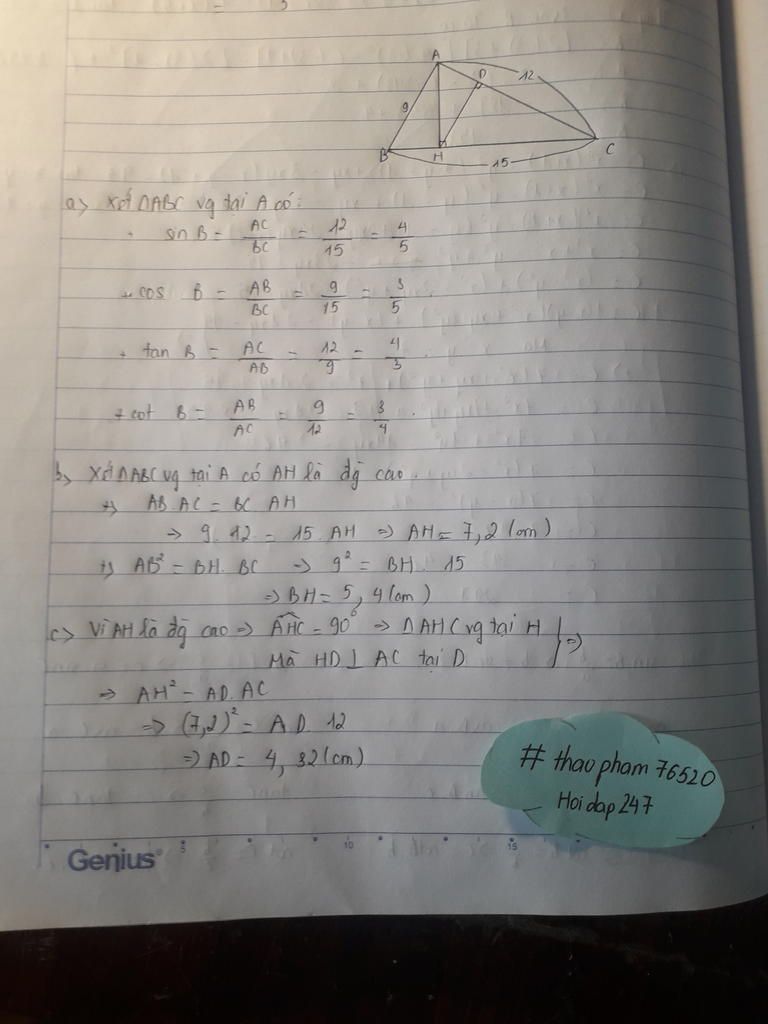 3
A
D
12
9
B
H
15
C
a) Xét △ABC vg tại A có:
sin B = AC/BC = 12/15 = 4/5
+ cos B = AB/BC = 9/15 = 3/5.
+ tan B = AC/AB = 12/9 = 4/3.
+ cot B = AB/AC = 9/12 = 3/4.
b) Xét △ABC vg tại A có AH là đg cao.
+) AB.AC = BC.AH
→ 9.12 = 15.AH ⇒ AH = 7,2 (cm)
+) AB² = BH.BC → 9² = BH.15
⇒ BH = 5,4 (cm)
c) Vì AH là đg cao ⇒ AHC = 90° ⇒ △AHC vg tại H } ⇒
Mà HD ⊥ AC tại D
⇒ AH² = AD.AC
⇒ (7,2)² = AD.12
⇒ AD = 4,32 (cm)
# thaopham76520
Hoidap247
Genius 5 10 15